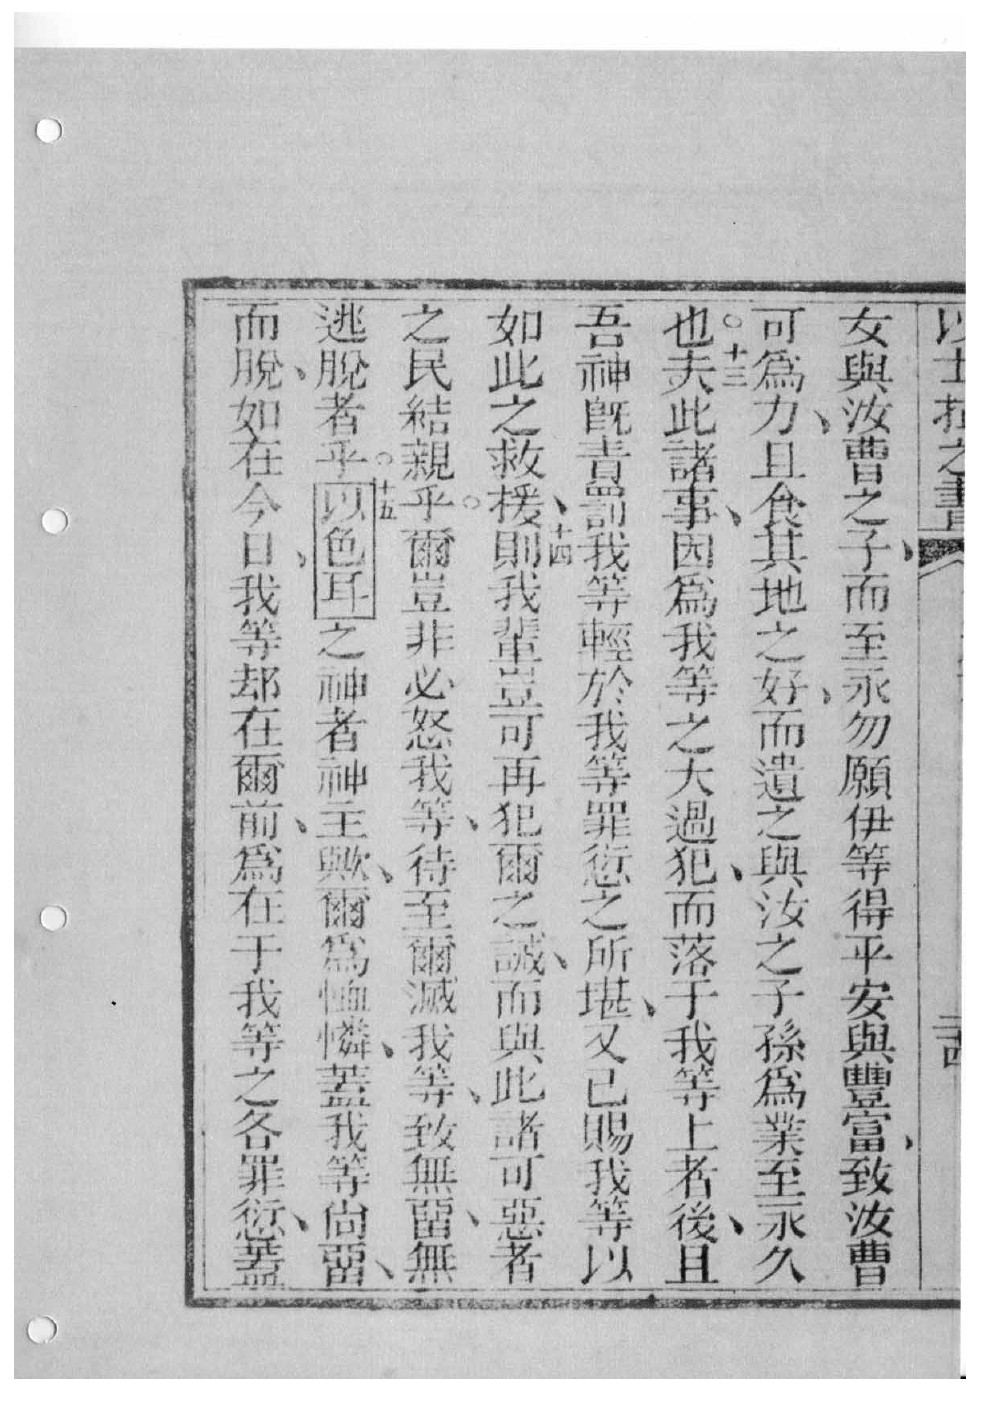 以士拉之書
女與汝曹之子、而至永勿願伊等得平安與豐富、致汝曹
可為力、且食其地之好、而遺之與汝之子孫為業至永久
也。十三夫此諸事、因為我等之大過犯、而落于我等上者、後且
吾神旣責罰我等輕於我等罪愆之所堪、又已賜我等以
如此之救援、十四則我輩豈可再犯爾之誡、而與此諸可惡者
之民結親乎。爾豈非必怒我等、待至爾滅我等、致無畱、無
逃脫者乎。十五以色耳之神者神主歟、爾為恤憐、蓋我等尙畱、
而脫、如在今日、我等却在爾前、為在于我等之各罪愆、蓋